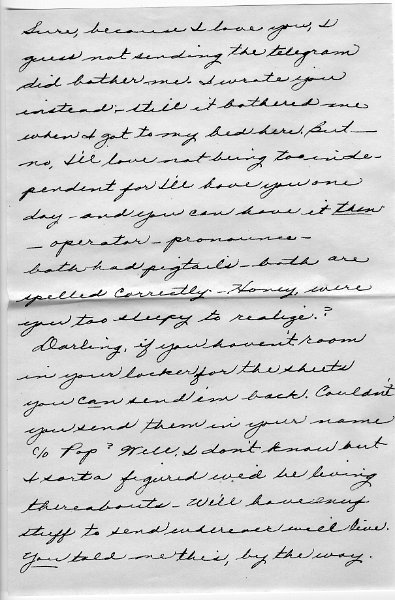 Sure, because I love you, I
guess not sending the telegram
did bother me. I wrote you
instead - still it bothered me
when I got to my bed here. But -
no, I'll love not being too inde-
pendent for I'll have you one
day - and you can have it then
- operator - pronounce -
both had pigtails - both are
spelled correctly - Honey, were
you too sleepy to realize.?
Darling, if you haven't room
in your locker for the sheets
you can send 'em back. Couldn't
you send them in your name
c/o Pop? Well, I don't know but
I sorta figured we'd be living
thereabouts - We'll have enuf
stuff to send wherever we'll live.
You told me this, by the way.